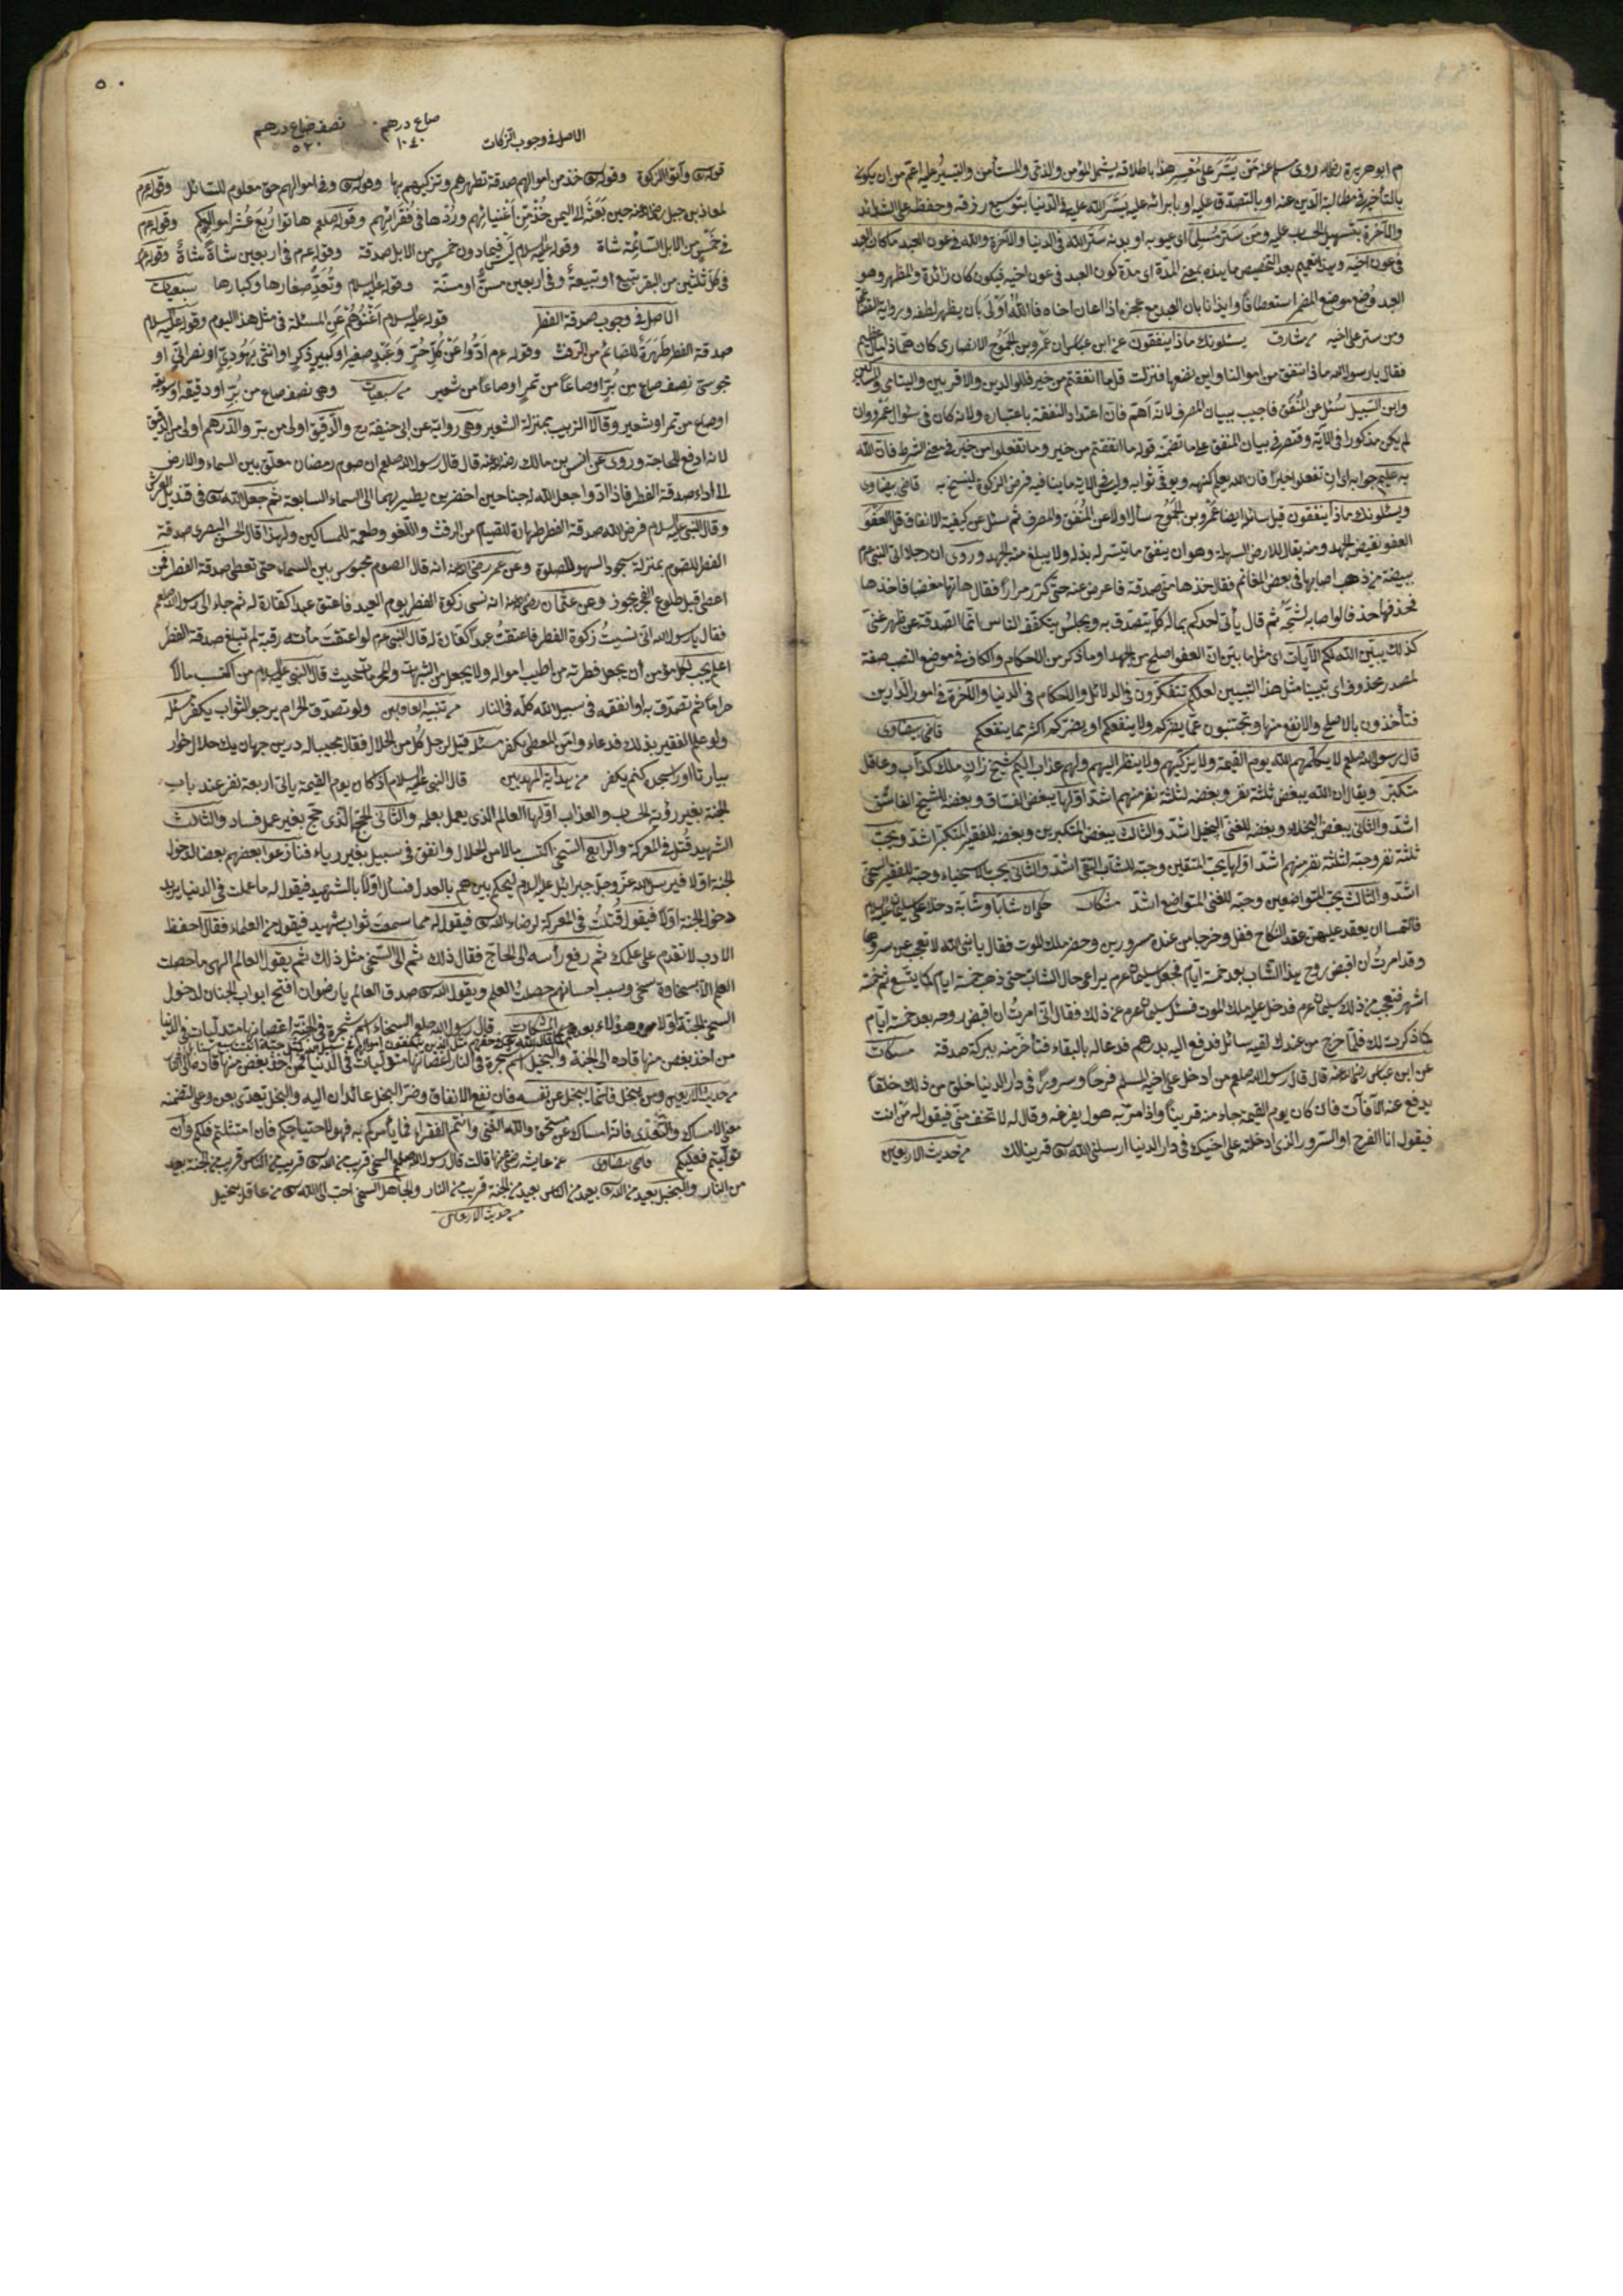 م ابو هريرة رضى الله روى مسلم عنه مَن يَسَّرَ على مُعْسِرٍ هذا باطلاقه يشمل المؤمن والذمى والمستأمن والتيسير عليه اعمّ من ان يكون
بالتأخير فى مطالبة الدّين عنه او بالتصدّق عليه او بابرائه عليه يَسَّرَ الله عليه فى الدّنيا بتوسيع رزقه وحفظه على الشدائد
والآخرة بتسهيل الحساب عليه ومَن سَتَرَ مُسلِماً اى عيوبه او بدنه سَتَرَ الله فى الدنيا والآخرة والله فى عون العبد ما كان العبد
فى عون اخيه وهذا تعميم بعد التخصيص ما بهذه بمعنى المدّة اى مدّة كون العبد فى عون اخيه فيكون كان زائدة والمظهر وهو
العبد وُضع موضع المضمر استعطافاً وايذانا بان العبد مع عجزه اذا اعان اخاه فالله اَوْلَى بان يظهر لطفه
ومن ستر على اخيه من مشارق يسئلونك ماذا ينفقون عن ابن عباس ان عَمْرو بن الجَمُوح الانصارى كان همّاً ذا مال عظيم
فقال يا رسول الله ماذا ننفق من اموالنا واين نضعها فنزلت قل ما انفقتم من خير فللوالدين والاقربين واليتامى والمساكين
وابن السّبيل سُئل عن المُنْفَق فاجيب ببيان المصرف لانه اهمّ فانّ اعتداد النفقة باعتباره ولانه كان فى سئوال عَمْرو وان
لم يكن مذكورا فى الآية واقتصر فى بيان المنفق على ما تضمّنه قوله ما انفقتم من خير وما تفعلوا من خير فى معنى الشرط فانّ الله
به عليم جوابه اى ان تفعلوا خيرا فان الله يعلم كنهه ويوفّى ثوابه وليس فى الآية ما ينافيه فرض الزكوة لينسخ به قاضى بيضاوى
ويسئلونك ماذا ينفقون قيل سائله ايضا عَمْرو بن الجَمُوح سأل اولا عن المُنفَق والمصرف ثم سئل عن كيفية الانفاق قل العَفْوَ
العفو نقيض الجهد ومنه يقال للارض السهلة وهو ان ينفق ما تيسّر له بذله ولا يبلغ منه الجهد وروى ان رجلا اتى النبى عم
ببيضة من ذهب اصابها فى بعض المغانم فقال خذها منى صدقة فاعرض عنه حتى كرّر مراراً فقال هاتها مغضبا فاخذها
فخذفها خذفا لو اصابه لشجّه ثم قال يأتى احدكم بماله كلّه يتصدّق به ويجلسُ يتكفّف الناس انّما الصّدقة عن ظهر غنى
كذلك يبيّن الله لكم الآيات اى مثل ما بيّن انّ العفو اصلح من الجهد او ما ذكر من الاحكام والكاف فى موضع النصب صفة
لمصدر محذوف اى تبيينا مثل هذا التبيين لعلكم تتفكّرون فى الدلائل والاحكام فى الدنيا والآخرة فى امور الدّارين
فتأخذون بالاصلح والانفع منها وتجتنبون عمّا يضرّكم ولا ينفعكم او يضركم اكثر مما ينفعكم قاضى بيضاوى
قال رسول الله صلعم لا يكلّمهم الله يوم القيمة ولا يزكّيهم ولا ينظر اليهم ولهم عذاب اليم شيخ زانٍ ملك كذّاب وعاقل
متكبّر ويقال ان الله يبغض ثلثة نفر وبغضه لثلثة نفر منهم اشدّ اوّلها يبغض الفسّاق وبغضه للشيخ الفاسق
اشدّ والثانى يبغض البخلاء وبغضه للغنى البخيل اشدّ والثالث يبغض المتكبرين وبغضه للفقير المتكبّر اشدّ ويحبّ
ثلثة نفر وحبّه لثلثة نفر منهم اشدّ اوّلها يحبّ المتقين وحبّه للشابّ التقى اشدّ والثانى يحبّ الاسخياء وحبّه للفقير السخى
اشدّ والثالث يحبّ المتواضعين وحبّه للغنى المتواضع اشدّ مشكات حكى ان شابا وشابة دخلا على سليمان عليه السلام
فالتمسا ان يعقد عليهن عقد النكاح ففعل وخرجا من عنده مسرورين وحضر ملك الموت فقال يا نبى الله لا تعجب عن سرورهما
وقد امرتُ ان اقبض روح هذا الشاب بعد خمسة ايّام فجعل سليمان عم يراعى حال الشابّ حتى ذهب خمسة ايام
اشهر فتعجب من ذلك سليمان عم فدخل عليه ملك الموت فسئل سليمان عم عن ذلك فقال انّى امرتُ ان اقبض روحه بعد خمسة ايّام
كما ذكرت لك فلمّا خرج من عندك لقيه سائل فدفع اليه بدرهم فدعا له بالبقاء فتأخّر منه ببركة صدقة مسكات
عن ابن عباس رضى الله عنه قال قال رسول الله صلعم من ادخل على اخيه المسلم فرحاً وسروراً فى دار الدنيا خلق من ذلك خلقاً
يدفع عنه الآفآت فان كان يوم القيمة جاء منه قريناً واذا مرّ به هول يفزعه وقال له لا تخف حتى فيقول له من انت
فيقول انا الفرح او السّرور الذى ادخلته على اخيك فى دار الدنيا ارسلنى الله تع قرينا لك من حديث الاربعين
٥٠
صاع درهم ١٠٤٠ نصف صاع درهم ٥٢٠
الاصل فى وجوب الزكات
قوله تع وآتوا الزكوة وقوله تع خذ من اموالهم صدقة تطهرهم وتزكيهم بها وقوله تع وفى اموالهم حق معلوم للسائل وقوله عم
لمعاذ بن جبل رضى الله عنه حين بَعَثَهُ الى اليمن خُذْ مِن اَغْنيائهم ورُدّها فى فُقَرائهم وقوله صلعم هاتوا رُبعَ عُشْر اموالكم وقوله عم
فى خَمْسٍ من الابل السّائمة شاة وقوله عليه السلام ليس فيما دون خمسٍ من الابل صدقة وقوله عم فى اربعين شاةً شاةٌ وقوله عم
فى كلّ ثلثين من البقر تبيع او تبيعةٌ وفى اربعين مسنٌّ او مسنّة وقوله عليه السلام وتُعَدُّ صغارها وكبارها
الاصل فى وجوب صدقة الفطر قوله عليه السلام اَغْنُوهُمْ عَنِ المسئلة فى مثل هذا اليوم وقوله عليه السلام
صدقة الفطر طُهْرَةٌ للصّائم من الرّفث وقوله عم ادّوا عَنْ كُلِّ حُرٍّ وَعَبْدٍ صغير او كبير ذكرٍ او انثى يهوديّ او نصرانى او
مجوسى نصف صاع من بُرّ او صاعاً من تمر او صاعاً من شعير وهى نصف صاع من بُرّ او دقيقه او سويقه
او صاع من تمر او شعير وقالا الزبيب بمنزلة الشعير وهى رواية عن ابى حنيفة رح والدّقيق اولى من برّ والدّرهم اولى من الدّقيق
لانه ادفع للحاجة وروى عن انس بن مالك رضى الله عنه قال قال رسول الله صلعم ان صوم رمضان معلّق بين السماء والارض
الى اداء صدقة الفطر فاذا ادّوا جعل الله له جناحين اخضرين يطير بهما الى السماء السابعة ثم جعل الله تع فى قنديل العرش
وقال النبى عليه السلام فرض الله صدقة الفطر طهارة للصيام من الرفث واللّغو وطعمة للمساكين ولهذا قال الحسن البصرى صدقة
الفطر للصّوم بمنزلة سجود السهو للصلوة وعن عمر رضى الله عنه انه قال الصوم محبوس بين السماء حتى تعطى صدقة الفطر فمن
اعطى قبل طلوع الفجر يجوز وعن عثمان رضى الله عنه انه نسى زكوة الفطر يوم العيد فاعتق عبدا كفارة له ثم جاء الى رسول الله صلعم
فقال يا رسول الله انّى نسيتُ زكوة الفطر فاعتقتُ عبداً كفارة له قال النبى عم لو اعتقتَ مأته رقبة لم تبلغ صدقة الفطر
اعلم يجب لكل مؤمن ان يجعل فطرته من اطيب امواله ولا يجعل من الشبهات والحرمات لحديث قال النبى عليه السلام من اكتسب مالاً
حراماً ثم تصدّق به او انفقه فى سبيل الله كلّه فى النار من تنبيه الغافلين ولو تصدّق الحرام يرجو الثواب يكفر
ولو علم الفقير بذلك فدعاه وامّن المعطى يكفر قيل لرجل كُلْ من الحلال فقال مجيبا له درين جهان يك حلال خوار
بيار تا اورا سجده كنم يكفر من هداية المهديين قال النبى عليه السلام اذا كان يوم القيمة يأتى اربعة نفر عند باب
الجنة بغير رؤية الحساب والعذاب اوّلها العالم الذى يعمل بعلمه والثّانى الحجّ الّذى حجّ بغير عمل فساد والثالث
الشهيد قُتل فى المعركة والرابع السّخى اكتسب مالا من الحلال وانفق فى سبيل بغير رياء فتنازعوا بعضهم بعضا لدخول
الجنة اوّلا فيرسل الله عزّ وجلّ جبرائيل عليه السلام ليحكم بينهم بالعدل فسأل اوّلاً بالشهيد فيقول له ما عملت فى الدنيا يريد
دخول الجنة اوّلا فيقول قُتلتُ فى المعركة لرضاء الله تع فيقول له مما سمعت ثواب شهيد فيقول من العلماء فقال احفظ
الادب لا تقدم على علمك ثم رفع رأسه الى الحاجّ فقال ذلك ثم الى السّخى مثل ذلك ثم يقول العالم الهى ما حصلت
العلم الّا بسخاوة سخى وسبب احسانهم حصلتُ العلم ويقول الله تع صدق العالم يا رضوان افتح ابواب الجنان لدخول
السخى الجنّة اوّلا وهؤلاء بعدهم مشكات قال رسول الله صلعم السخاء اسم شجرة فى الجنّة اغصانها متدلّيات فى الدنيا
من اخذ بغصن منها قاده الى الجنة والبخيل اسم شجرة فى النار اغصانها متدليات فى الدّنيا فمن اخذ بغصن منها قاده الى النار
من حديث الاربعين ومن يبخل فانّما يبخل عن نفسه فان نفع الانفاق وضرّ البخل عائدان اليه والبخل يعدّى بعن وعلى لتضمنه
معنى الامساك والتعدّى فانه امساك عن مستحق والله الغنى وانتم الفقراء فما يأمركم به فهو لاحتياجكم فان امتثلتم فلكم وان
تولّيتم فعليكم قاضى بيضاوى عن عايشه رضى عنها قالت قال رسول الله صلعم السخى قريب من الله تع قريب من الناس قريب من الجنة بعيد
من النار والبخيل بعيد من الله تع بعيد من الناس بعيد من الجنة قريب من النار والجاهل السخى احبّ الى الله تع من عاقل بخيل
من حديث الاربعين